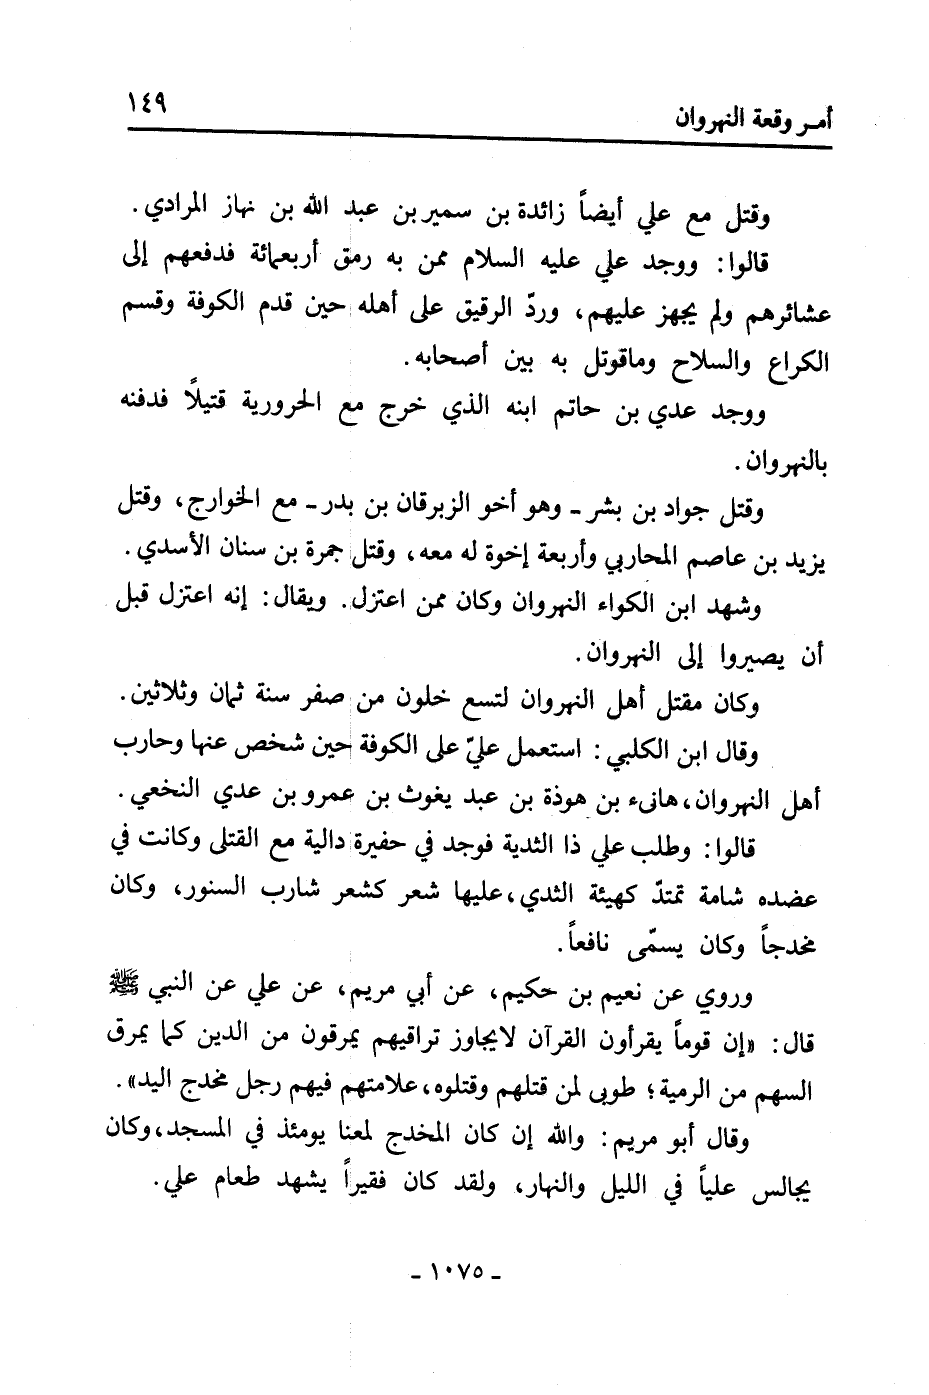 أمـر وقعة النهروان ١٤٩
وقتل مع علي أيضاً زائدة بن سمير بن عبد الله بن نهاز المرادي.
قالوا: ووجد علي عليه السلام ممن به رمق أربعمائة فدفعهم إلى
عشائرهم ولم يجهز عليهم، وردّ الرقيق على أهله حين قدم الكوفة وقسم
الكراع والسلاح وماقوتل به بين أصحابه.
ووجد عدي بن حاتم ابنه الذي خرج مع الحرورية قتيلاً فدفنه
بالنهروان.
وقتل جواد بن بشر ـ وهو أخو الزبرقان بن بدر ـ مع الخوارج، وقتل
يزيد بن عاصم المحاربي وأربعة إخوة له معه، وقتل جمرة بن سنان الأسدي.
وشهد ابن الكواء النهروان وكان ممن اعتزل. ويقال: إنه اعتزل قبل
أن يصيروا إلى النهروان.
وكان مقتل أهل النهروان لتسع خلون من صفر سنة ثمان وثلاثين.
وقال ابن الكلبي: استعمل عليّ على الكوفة حين شخص عنها وحارب
أهل النهروان، هانىء بن هوذة بن عبد يغوث بن عمرو بن عدي النخعي.
قالوا: وطلب علي ذا الثدية فوجد في حفيرة دالية مع القتلى وكانت في
عضده شامة تمتدّ كهيئة الثدي، عليها شعر كشعر شارب السنور، وكان
مخدجاً وكان يسمّى نافعاً.
وروي عن نعيم بن حكيم، عن أبي مريم، عن علي عن النبي ﷺ
قال: «إن قوماً يقرأون القرآن لايجاوز تراقيهم يمرقون من الدين كما يمرق
السهم من الرمية؛ طوبى لمن قتلهم وقتلوه، علامتهم فيهم رجل مخدج اليد».
وقال أبو مريم: والله إن كان المخدج لمعنا يومئذ في المسجد، وكان
يجالس علياً في الليل والنهار، ولقد كان فقيراً يشهد طعام علي.
ـ ١٠٧٥ ـ